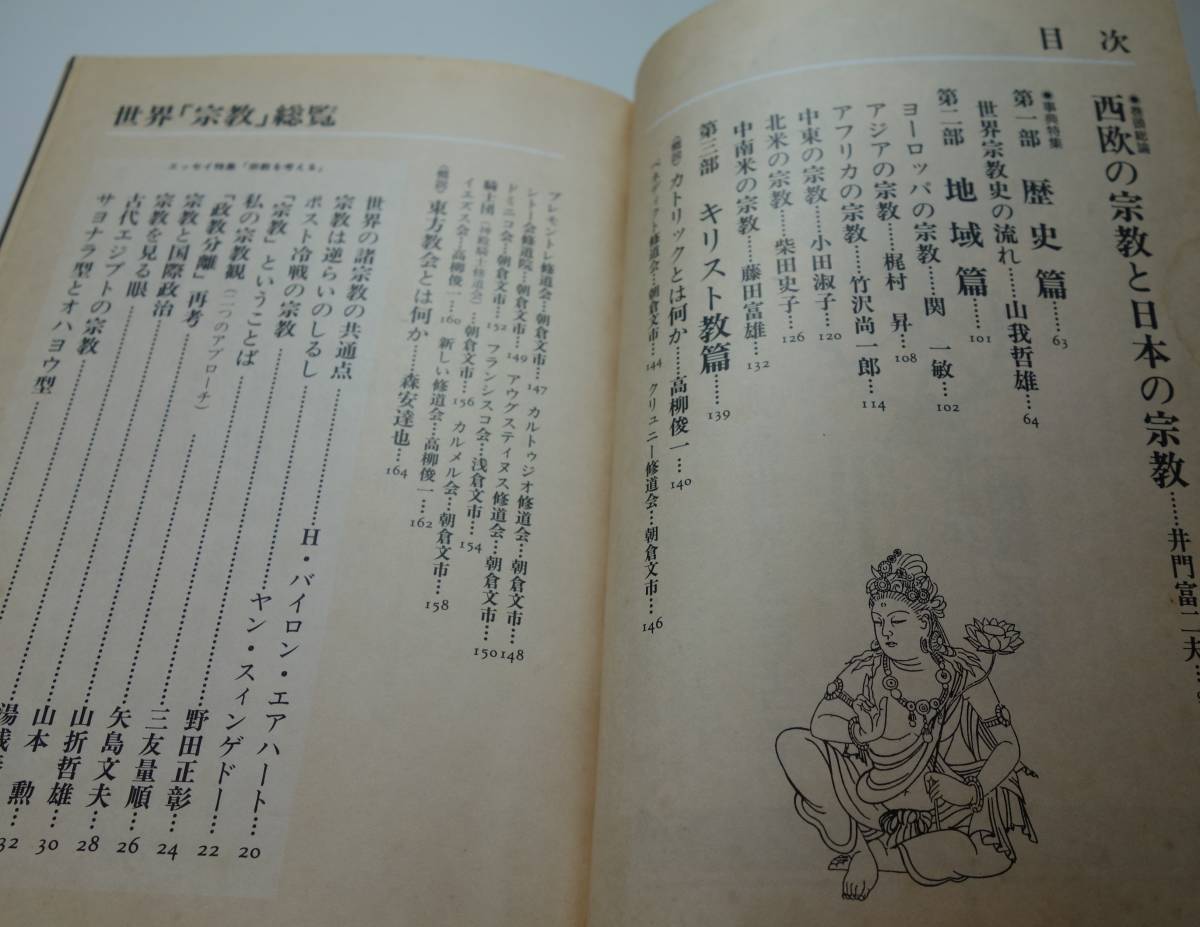 目次
●巻頭総論
西欧の宗教と日本の宗教……井門富二夫…
●事典特集
第一部 歴史篇……63
世界宗教史の流れ……山我哲雄…64
第二部 地域篇……101
ヨーロッパの宗教……関 一敏…102
アジアの宗教……梶村 昇…108
アフリカの宗教……竹沢尚一郎…114
中東の宗教……小田淑子…120
北米の宗教……柴田史子…126
中南米の宗教……藤田富雄…132
第三部 キリスト教篇……139
〈概説〉カトリックとは何か……高柳俊一…140
ベネディクト修道会…朝倉文市…144 クリュニー修道会…朝倉文市…146
世界「宗教」総覧
プレモントレ修道会…朝倉文市…147 カルトゥジオ修道会…朝倉文市…148
シトー会修道院…朝倉文市…149 アウグスティヌス修道会…朝倉文市…150
ドミニコ会…朝倉文市…152 フランシスコ会…浅倉文市…154
騎士団（神殿騎士修道会）…朝倉文市…156 カルメル会…朝倉文市…158
イエズス会…高柳俊一…160 新しい修道会…高柳俊一…162
〈概説〉東方教会とは何か……森安達也…164
エッセイ特集「宗教を考える」
世界の諸宗教の共通点
宗教は逆らいのしるし
ポスト冷戦の宗教
「宗教」ということば
私の宗教観（二つのアプローチ）
「政教分離」再考
宗教と国際政治
宗教を見る眼
古代エジプトの宗教
サヨナラ型とオハヨウ型
H・バイロン・エアハート…20
ヤン・スィンゲドー…22
野田正彰…24
三友量順…26
矢島文夫…28
山折哲雄…30
山本 勲…32